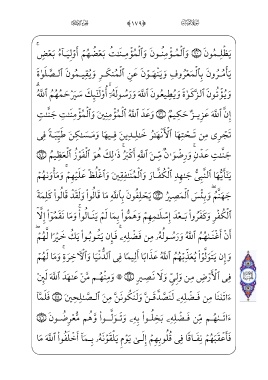 يَظْلِمُونَ وَٱلْمُؤْمِنُونَ وَٱلْمُؤْمِنَٰتُ بَعْضُهُمْ أَوْلِيَآءُ بَعْضٍ
يَأْمُرُونَ بِٱلْمَعْرُوفِ وَيَنْهَوْنَ عَنِ ٱلْمُنكَرِ وَيُقِيمُونَ ٱلصَّلَوٰةَ
وَيُؤْتُونَ ٱلزَّكَوٰةَ وَيُطِيعُونَ ٱللَّهَ وَرَسُولَهُۥٓ أُو۟لَٰٓئِكَ سَيَرْحَمُهُمُ ٱللَّهُ
إِنَّ ٱللَّهَ عَزِيزٌ حَكِيمٌ وَعَدَ ٱللَّهُ ٱلْمُؤْمِنِينَ وَٱلْمُؤْمِنَٰتِ جَنَّٰتٍ
تَجْرِى مِن تَحْتِهَا ٱلْأَنْهَٰرُ خَٰلِدِينَ فِيهَا وَمَسَٰكِنَ طَيِّبَةً فِى
جَنَّٰتِ عَدْنٍ وَرِضْوَٰنٌ مِّنَ ٱللَّهِ أَكْبَرُ ذَٰلِكَ هُوَ ٱلْفَوْزُ ٱلْعَظِيمُ
يَٰٓأَيُّهَا ٱلنَّبِىُّ جَٰهِدِ ٱلْكُفَّارَ وَٱلْمُنَٰفِقِينَ وَٱغْلُظْ عَلَيْهِمْ وَمَأْوَىٰهُمْ
جَهَنَّمُ وَبِئْسَ ٱلْمَصِيرُ يَحْلِفُونَ بِٱللَّهِ مَا قَالُوا۟ وَلَقَدْ قَالُوا۟ كَلِمَةَ
ٱلْكُفْرِ وَكَفَرُوا۟ بَعْدَ إِسْلَٰمِهِمْ وَهَمُّوا۟ بِمَا لَمْ يَنَالُوا۟ وَمَا نَقَمُوٓا۟ إِلَّآ
أَنْ أَغْنَىٰهُمُ ٱللَّهُ وَرَسُولُهُۥ مِن فَضْلِهِۦ فَإِن يَتُوبُوا۟ يَكُ خَيْرًا لَّهُمْ
وَإِن يَتَوَلَّوْا۟ يُعَذِّبْهُمُ ٱللَّهُ عَذَابًا أَلِيمًا فِى ٱلدُّنْيَا وَٱلْءَاخِرَةِ وَمَا لَهُمْ
فِى ٱلْأَرْضِ مِن وَلِىٍّ وَلَا نَصِيرٍ ۞ وَمِنْهُم مَّنْ عَٰهَدَ ٱللَّهَ لَئِنْ
ءَاتَىٰنَا مِن فَضْلِهِۦ لَنَصَّدَّقَنَّ وَلَنَكُونَنَّ مِنَ ٱلصَّٰلِحِينَ فَلَمَّآ
ءَاتَىٰهُم مِّن فَضْلِهِۦ بَخِلُوا۟ بِهِۦ وَتَوَلَّوا۟ وَّهُم مُّعْرِضُونَ
فَأَعْقَبَهُمْ نِفَاقًا فِى قُلُوبِهِمْ إِلَىٰ يَوْمِ يَلْقَوْنَهُۥ بِمَآ أَخْلَفُوا۟ ٱللَّهَ مَا